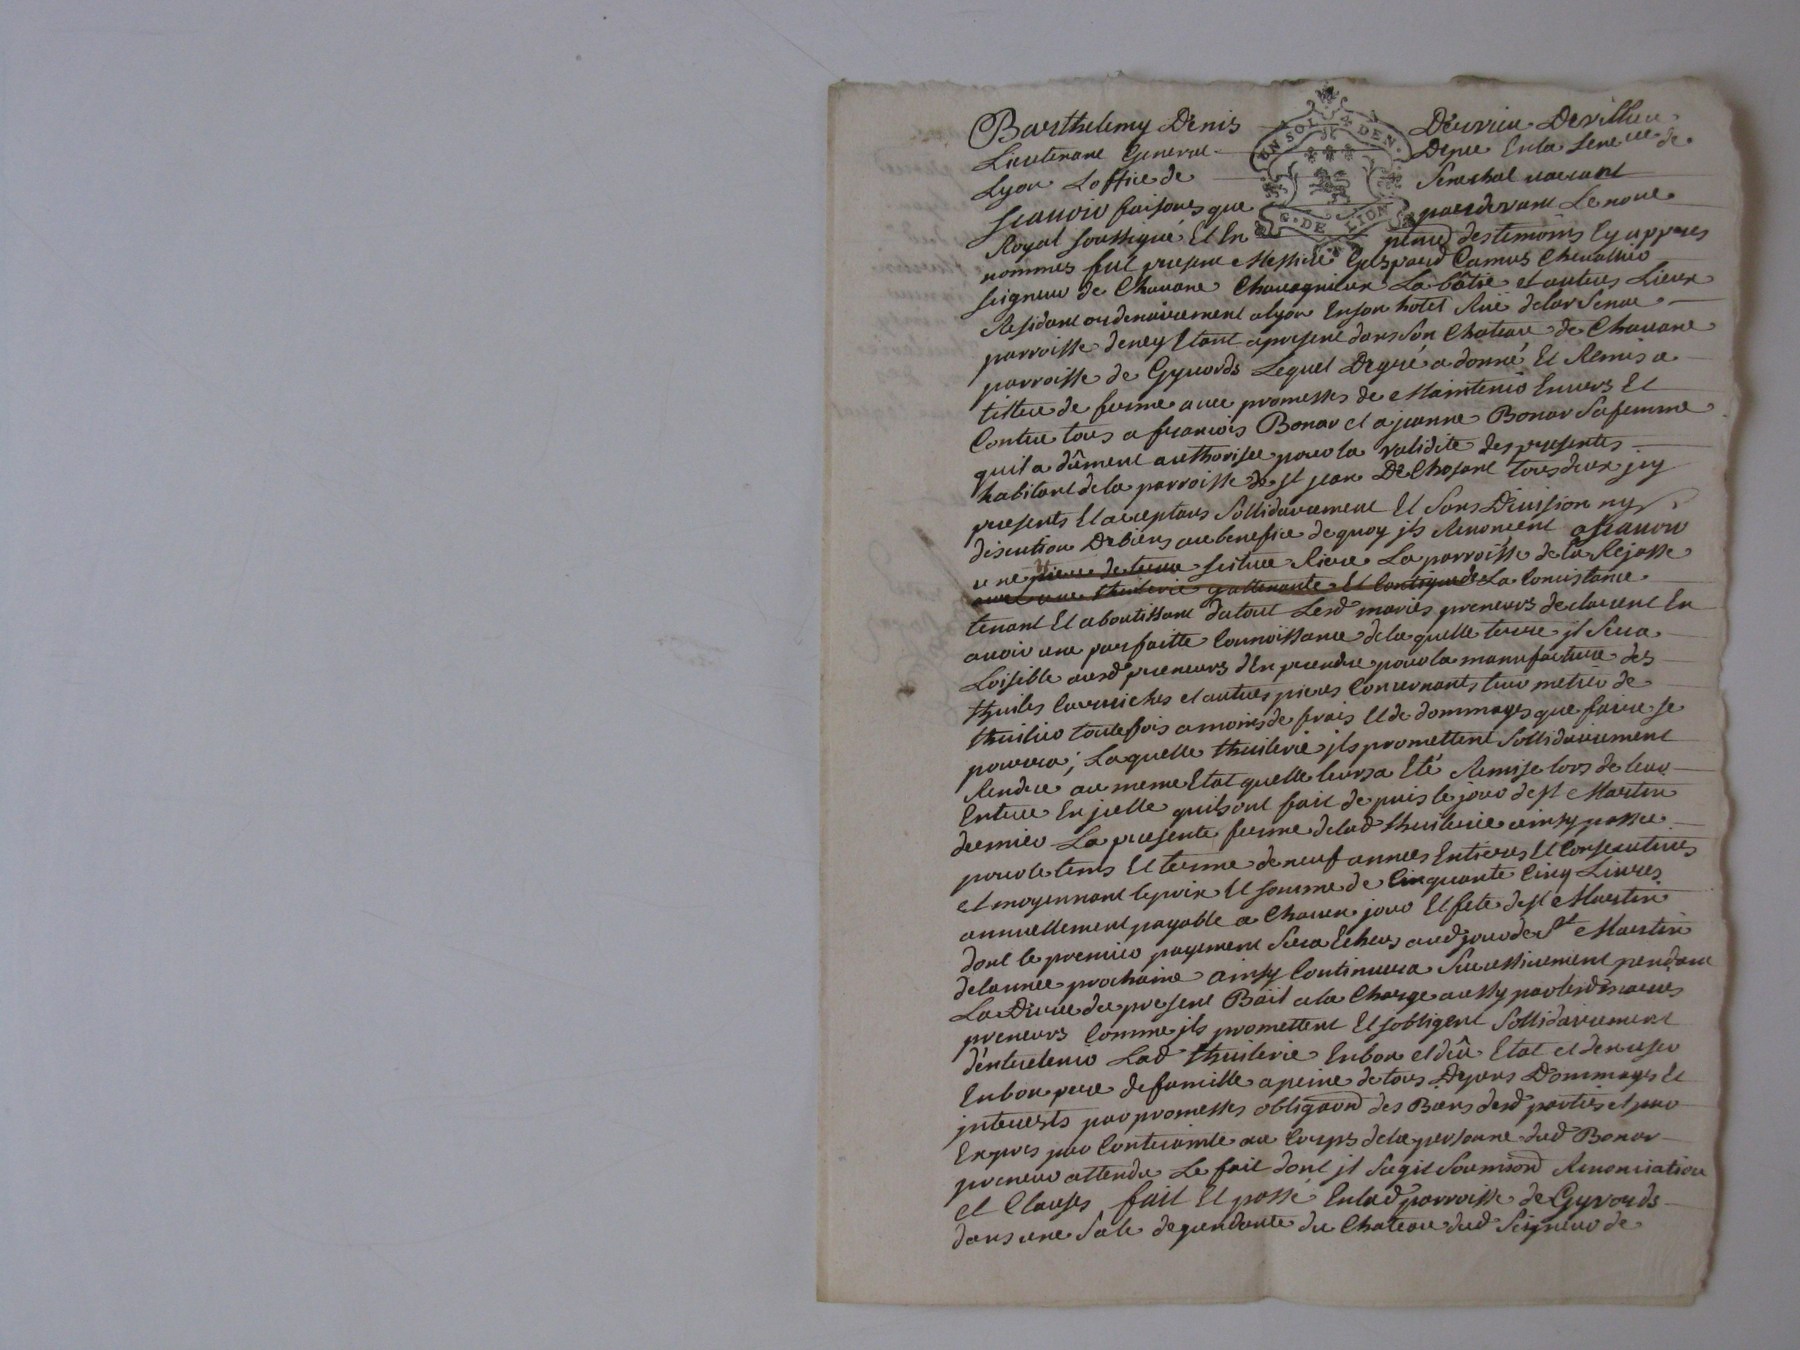 Barthelemy Denis Deuvieu Devilleu
UN SOL 4 DEN.
Lieutenant General Depée En la Senecée de
Lyon Loffice de Senechal vaccant
G. DE LION
Scavoir faisons que pardevant Le noире
Royal soussigné Et En pnce des temoins Cy appres
nommés fut present Messire Gaspard Camus Chevallier
seigneur de Chavane Chavagnieux La bâtie et autres Lieux
Residant ordenairement alyon Enson hotel Rüe delarsenac
parroisse deney Etant apresent dans son Chateau de Chavane
parroisse de Gyvords Lequel Degré a donné Et Remis a
tiltre de ferme avec promesses de Maintenir Envers Et
Contre tous a francois Bonav et a jeanne Bonav Safemme
quil a dûment authorisée pour la validité des presentes
habitant de la parroisse de st jean De Chosant tous deux jcy
presents Et acceptans Sollidairement Et Sans Division ny
discution De Biens au benefice de quoy jls Renoncent aScavoir
une piece de terre scitüee Riere La parroisse de la Rejasse
avec une thuilerie y attenante Et Contigue de La Concistance
tenant Et aboutissant du tout Lesd mariés preneurs declarent En
avoir une parfaitte Connoissance de la quelle terre jl Sera
Loisible ausd preneurs d'En prendre pour la manufacture des
thuiles Carriches et autres pieces Concernants leur metier de
thuilier toutefois a moins de frais Et de dommages que faire se
pourra; Laquelle thuilerie jls promettent Sollidairement
Rendre au meme Etat quelle leurs a Eté Remise lors de leur
Entree En jcelle quils ont fait depuis le jour de st Martin
dernier La presente ferme de lad thuilerie ainsy passée
pour le tems Et terme de neuf années Entieres Et Consecutives
et moyennant le prix Et somme de Cinquante Cinq Livres
annuellement payable a Chacun jour Et fete de st Martin
dont le premier payement Sera Echus aud jour de St Martin
de lannée prochaine ainsy Continuera Successivement pendant
La Durée du present Bail a la Charge aussy par lesd mariés
preneurs Comme jls promettent Et sobligent Sollidairement
d'entretenir Lad thuilerie En bon et dû Etat et den user
En bon pere de famille a peine de tous Depens Dommages Et
jnterests par promesses obligaon des Biens desd parties et par
Exprés par Contrainte au Corps de la personne dud Bonav
preneur attendu Le fait dont jl Sagit Soumison Renonciation
et Clauses fait Et passé En lad parroisse de Gyvords
dans une Sale dependante du Chateau dud Seigneur de